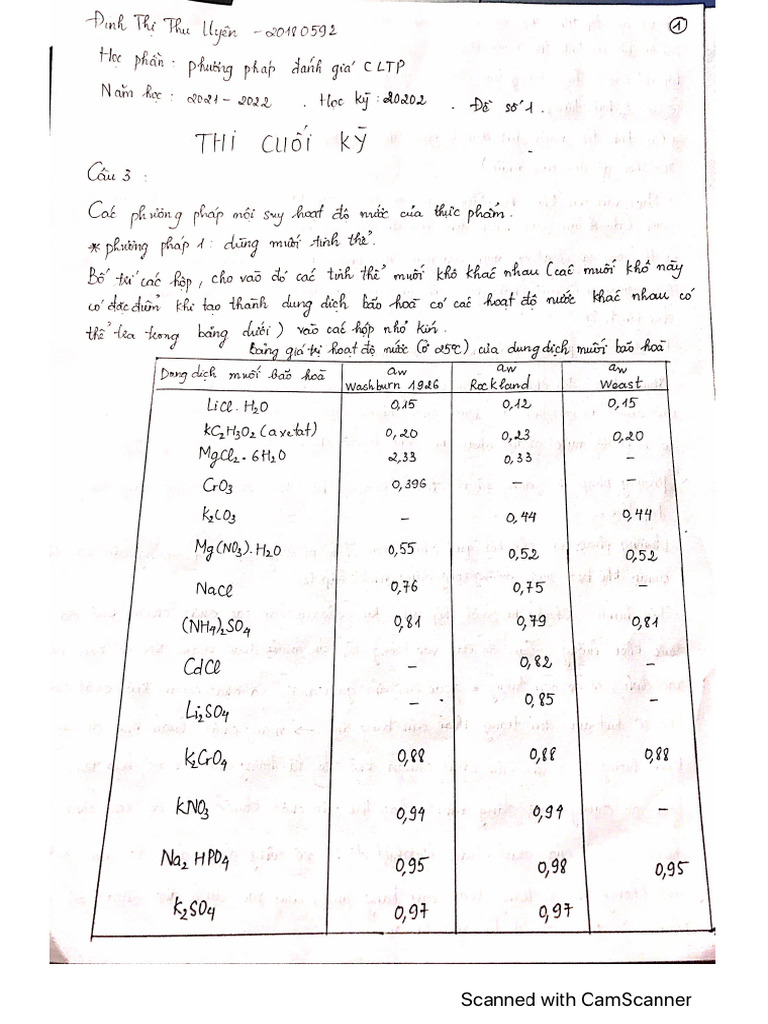 Đinh Thị Thu Uyên - 20180592 ①
Học phần : phương pháp đánh giá CLTP
Năm học : 2021 - 2022 . Học kỳ : 20202 . Đề số 1.
THI CUỐI KỲ
Câu 3 :
Các phương pháp nội suy hoạt độ nước của thực phẩm.
* phương pháp 1 : dùng muối tinh thể.
Bố trí các hộp, cho vào đó các tinh thể muối khô khác nhau (các muối khô này
có đặc điểm khi tạo thành dung dịch bão hoà có các hoạt độ nước khác nhau có
thể tra trong bảng dưới) vào các hộp nhỏ kín.
Bảng giá trị hoạt độ nước (ở 25°C) của dung dịch muối bão hoà
Dung dịch muối bão hoà aw Washburn 1926 aw Rockland aw Weast
LiCl.H2O 0,15 0,12 0,15
KC2H3O2 (axetat) 0,20 0,23 0,20
MgCl2.6H2O 2,33 0,33 -
CrO3 0,396 - -
K2CO3 - 0,44 0,44
Mg(NO3).H2O 0,55 0,52 0,52
NaCl 0,76 0,75 -
(NH4)2SO4 0,81 0,79 0,81
CdCl - 0,82 -
Li2SO4 - 0,85 -
K2CrO4 0,88 0,88 0,88
KNO3 0,94 0,94 -
Na2HPO4 0,95 0,98 0,95
K2SO4 0,97 0,97
Scanned with CamScanner